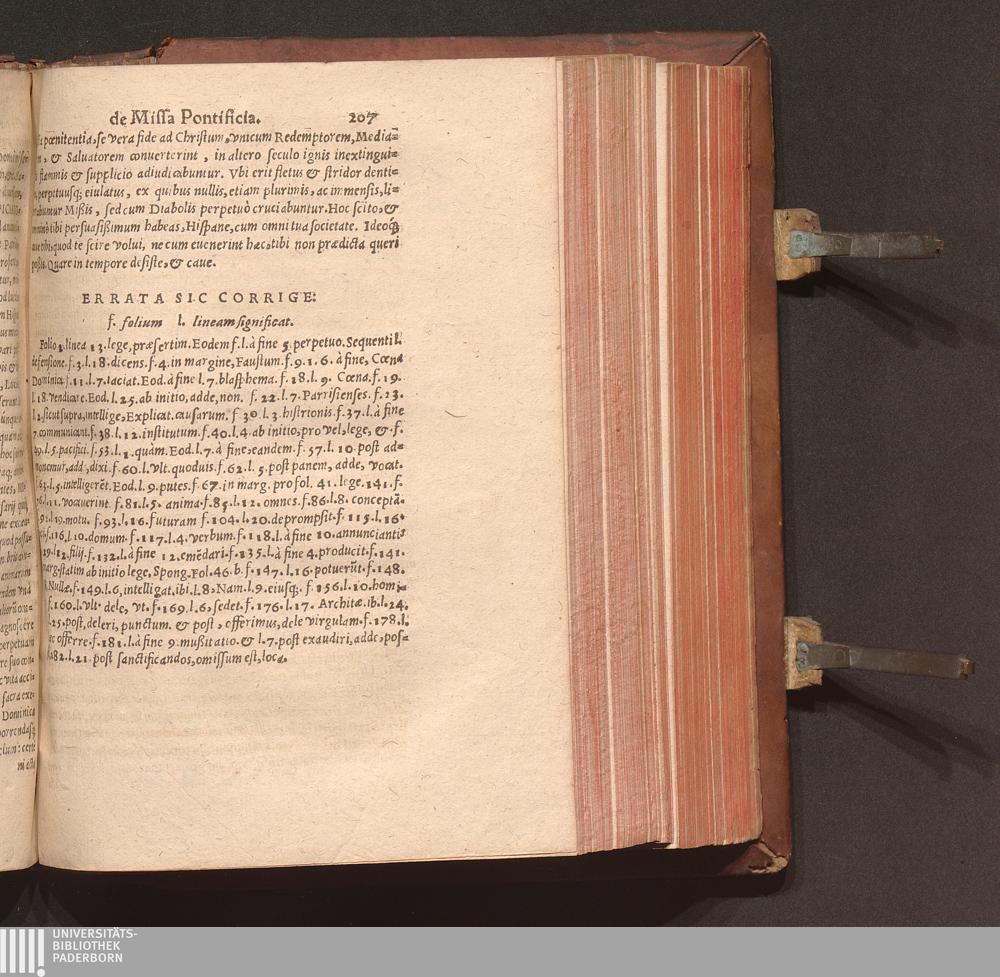 de Missa Pontificia. 207
pœnitentia, se vera fide ad Christum, vnicum Redemptorem, Media=
& Saluatorem conuerterint, in altero seculo ignis inextingui=
flammis & supplicio adiudicabuntur. Vbi erit fletus & stridor denti=
perpetuusq; eiulatus, ex quibus nullis, etiam plurimis, ac immensis, li=
Mißis, sed cum Diabolis perpetuò cruciabuntur. Hoc scito, &
tibi persuasißimum habeas, Hispane, cum omni tua societate. Ideoq́;
tibi, quod te scire volui, ne cum euenerint hæc, tibi non prædicta queri
poßis. Quare in tempore desiste, & caue.
ERRATA SIC CORRIGE:
f. folium l. lineam significat.
Folio 3. linea 13. lege, præsertim. Eodem f. l. à fine 5 perpetuo. Sequenti l.
defensione. f. 3. l. 18. dicens. f. 4. in margine, Faustum. f. 9. 1. 6. à fine, Cœna
Dominica f. 11. l. 7. iaciat. Eod. à fine l. 7. blasphema. f. 18. l. 9. Cœna. f. 19.
l. 18. vendicare. Eod. l. 25. ab initio, adde, non. f. 22. l. 7. Parrisienses. f. 23.
l. 2. sicut supra, intellige, Explicat. causarum. f 30. l. 3. histrionis. f. 37. l. à fine
7. communicant. f. 38. l. 12. institutum. f. 40. l. 4. ab initio, pro vel, lege, &. f.
l. 5. pacifici. f. 53. l. 1. quàm. Eod. l. 7. à fine, eandem. f. 57. l. 10. post ad=
add, dixi. f. 60. l. vlt. quoduis. f. 62. l. 5. post panem, adde, vocat.
63. l. 5. intelligerēt. Eod. l. 9. putes. f. 67. in marg. pro fol. 41. lege. 141. f.
l. 11. vocauerint. f. 81. l. 5. anima. f. 85. l. 12. omnes. f. 86. l. 8. conceptā.
l. 19. motu. f. 93. l. 16. futuram f. 104. l. 20. depromptsit. f. 115. l. 16.
f. 116. l. 10. domum. f. 117. l. 4. verbum. f. 118. l. à fine 10. annunciantis
l. 12. filij. f. 132. l. à fine 12. emēdari. f. 135. l. à fine 4. producit. f. 141.
marg. statim ab initio lege, Spong. Fol. 46. b. f. 147. l. 16. potuerūt. f. 148.
Nullæ. f. 149. l. 6, intelligat. ibi. l. 8, Nam. l. 9. eiusq;. f 156. l. 10. homi=
f. 160. l. vlt. dele, vt. f. 169. l. 6, sedet. f. 176. l. 17. Architæ. ib. l. 24.
25. post, deleri, punctum. & post, offerimus, dele virgulam. f. 178. l.
offerre. f. 181. l. à fine 9. mußitatio. & l. 7. post exaudiri, adde, pos=
182. l. 21. post sanctificandos, omissum est, loca.
UNIVERSITÄTS-
BIBLIOTHEK
PADERBORN